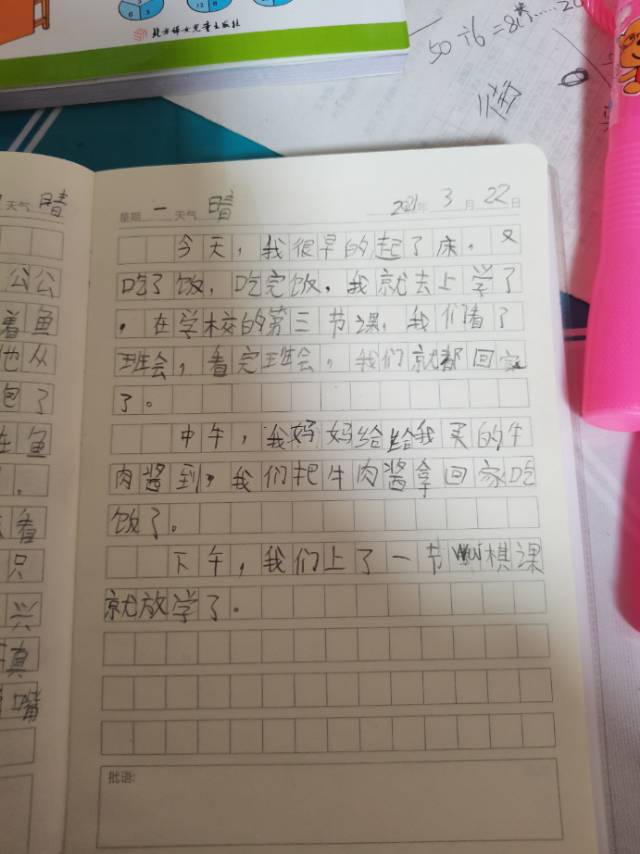 北方妇女儿童出版社
50÷6=8(
天气 晴
星期 一 天气 晴 2021年 3 月 22 日
公公
着鱼
也从
包了
在鱼
。
看
只
兴
真
嘴
今天，我很早的起了床。又
吃了饭，吃完饭，我就去上学了
，在学校的第三节课，我们看了
班会，看完班会，我们就都回家
了。
中午，我妈妈给给我买的牛
肉酱到，我们把牛肉酱拿回家吃
饭了。
下午，我们上了一节棋课
就放学了。
批语: